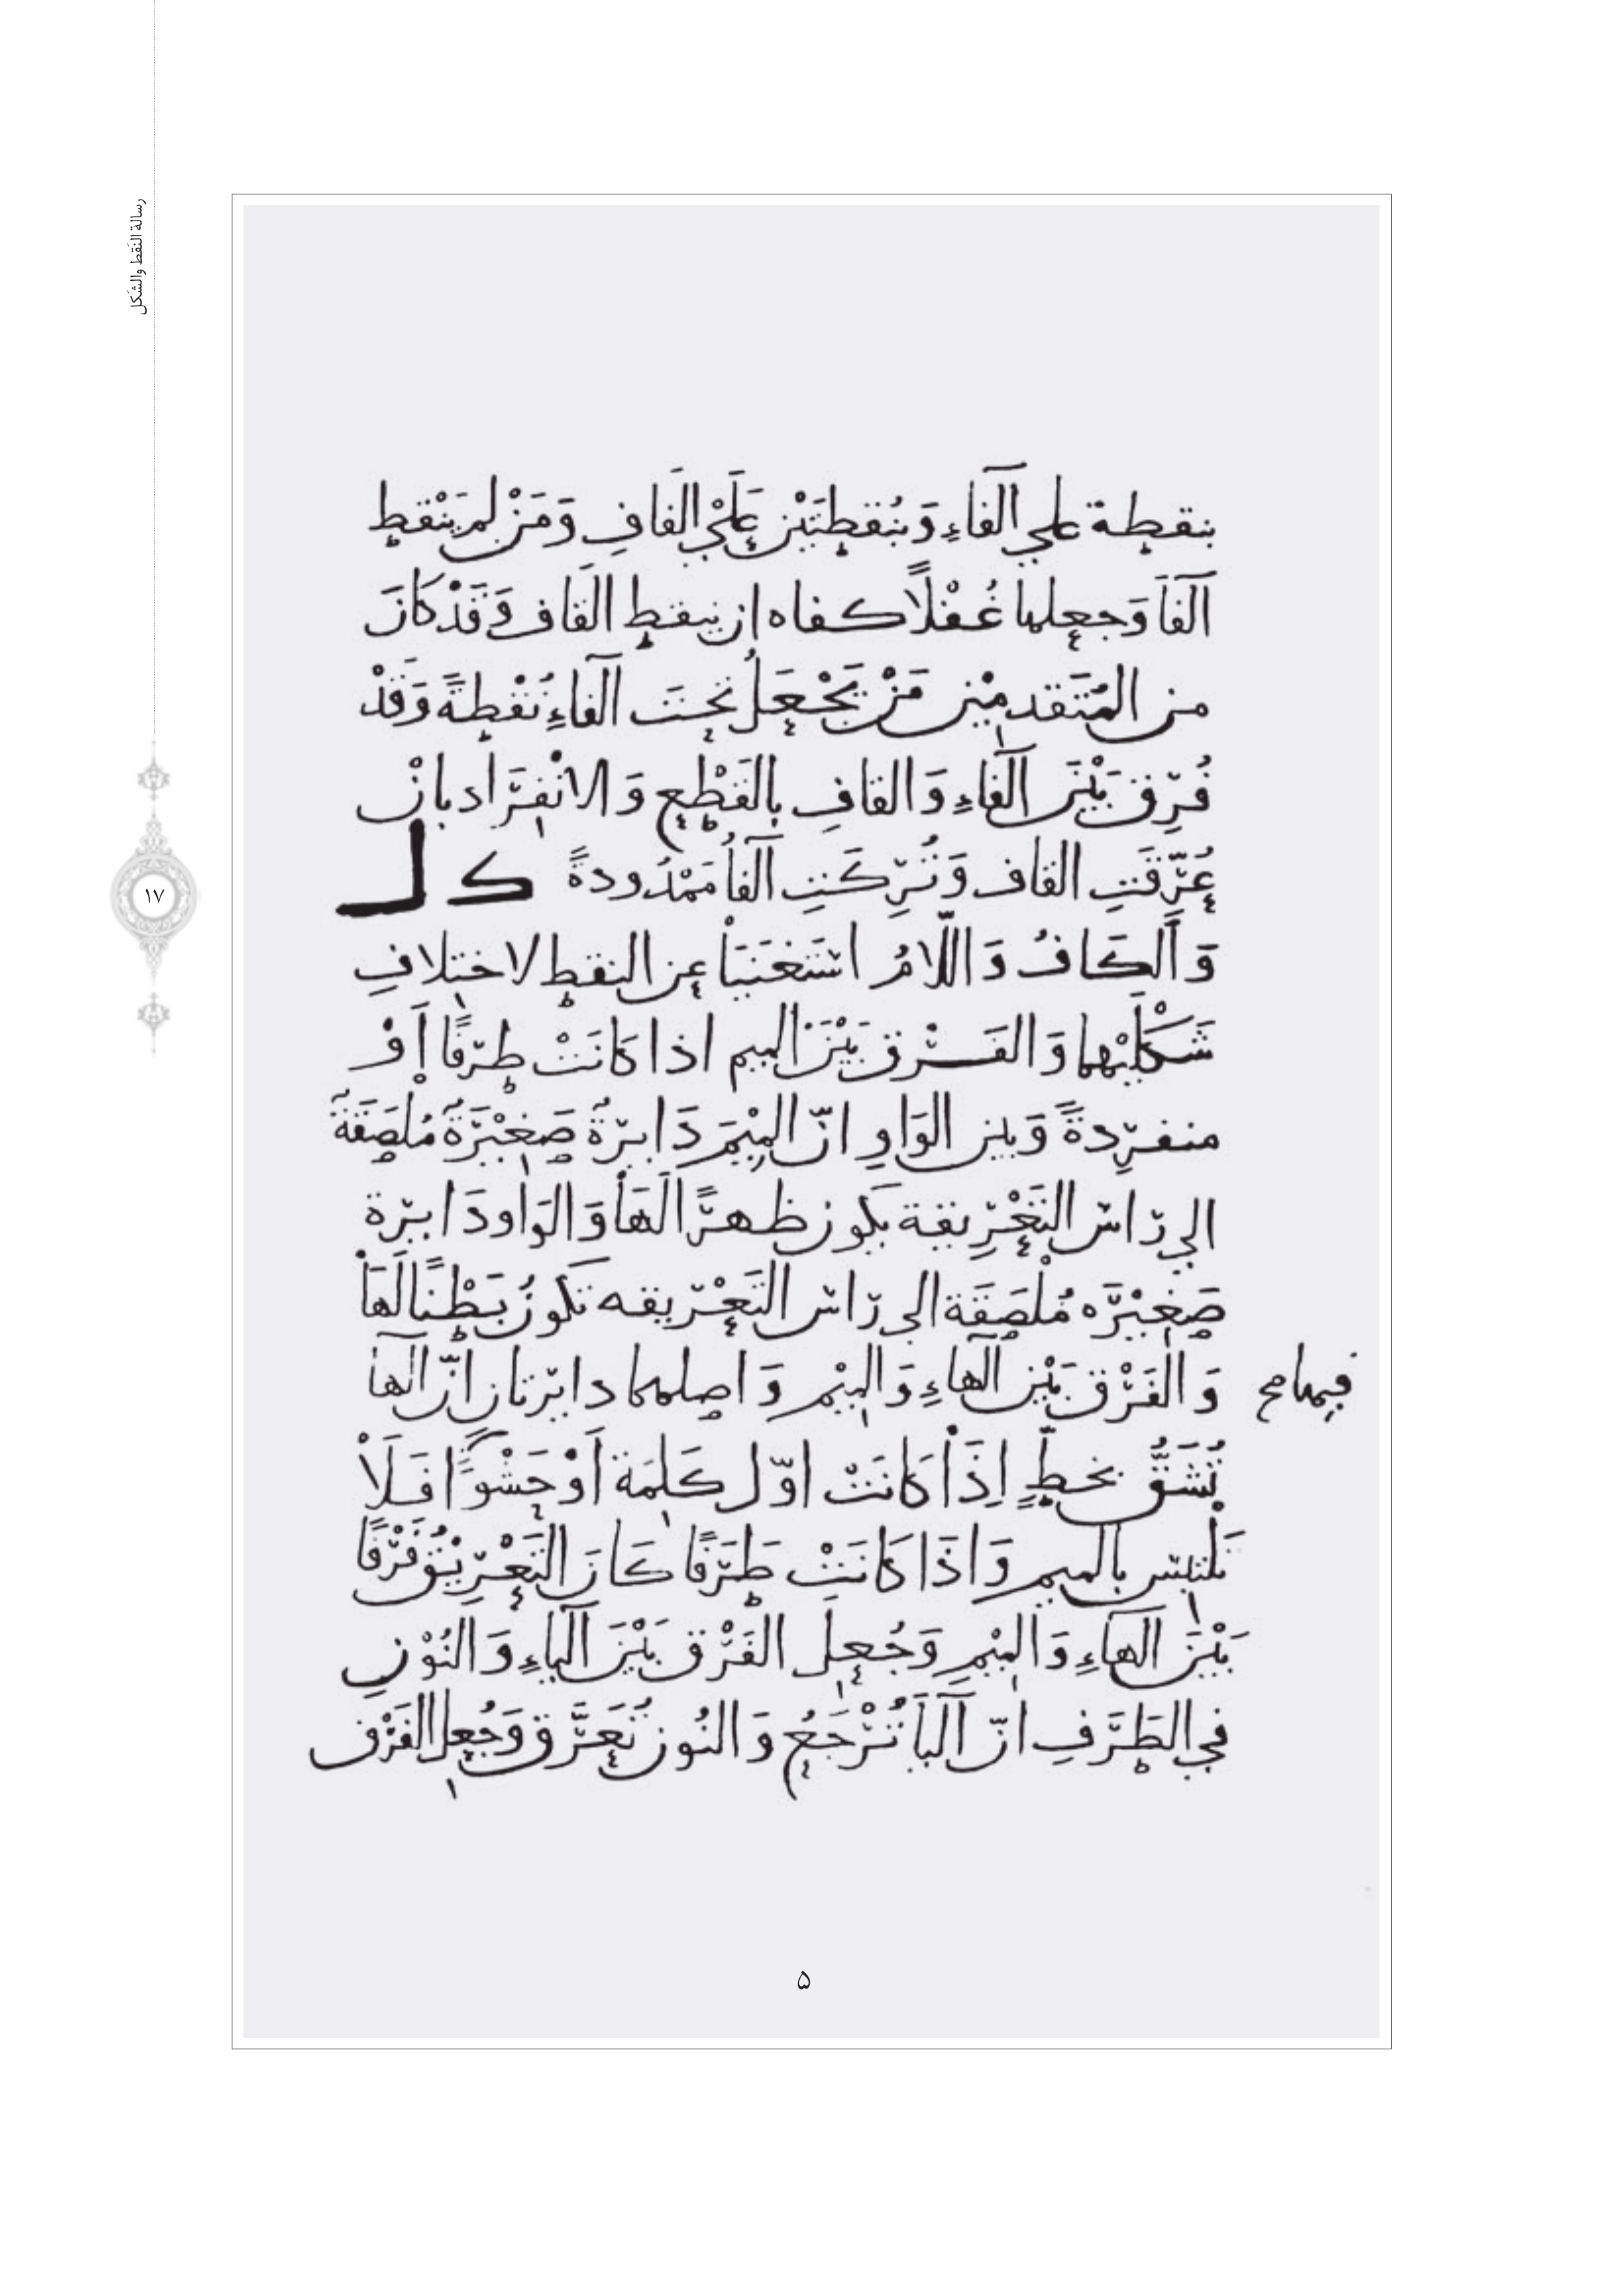 رسالة النَقط والشَكل
بنقطة علي الفَاءِ وَبنُقطتَيْن عَلَيْ القافِ وَمَنْ لم يَنْقط
الفَا وَجعلها غُفْلًا كفاه ان ينقط القاف وَقَدْ كانَ
من المُتَقدميْن مَنْ يَجْعَلُ تحتَ الفاءِ نُقْطةً وَقَدْ
فُرِّق بَيْنَ الفَاءِ وَالقافِ بالقَطْعِ وَالانْفِرَاد بانْ
عُرِّقَتِ القاف وَتُرِكَتِ الفَاُ مَمْدُودةً ك ل
وَالكافُ وَاللَّامُ اسْتَغنَيَاْ عن النقط لاختِلافِ
شَكْلَيْهما وَالفَرْق بَيْنَ الميم اذا كانَتْ طرَفًا أَوْ
منفرِدةً وَبين الوَاوِ انّ المِيْمَ دَايرَةٌ صَغِيْرَةٌ مُلصَقَةٌ
الي رَاس التَعْرِيقة يكون ظهرًا لَهَاْ وَالوَاو دَايرَة
صَغِيْرَه مُلْصَقَة الي رَاس التَعْرِيقه تكونُ بَطْنًا لَهَاْ
وَالفَرْق بَيْن الهاءِ وَالمِيْم وَاصلهما دايرَتان انّ الها
فيهما صح
تُشَقُّ بخطٍّ اِذَاْ كَانَتْ اوّل كَلِمَة أَوْ حَشْوًا فَلَاْ
تَلْتبِس بالميم وَاذَا كَانَتْ طَرَفًا كَانَ التَعْرِيْقُ فَرْقًا
بَيْنَ الهاءِ وَالمِيْمِ وَجُعِلَ الفَرْق بَيْنَ الباءِ وَالنُوْنِ
في الطَرَفِ انّ البَا تُرْجَعُ وَالنُون تُعَرَّق وَجُعِل الفَرْق
٥
١٧